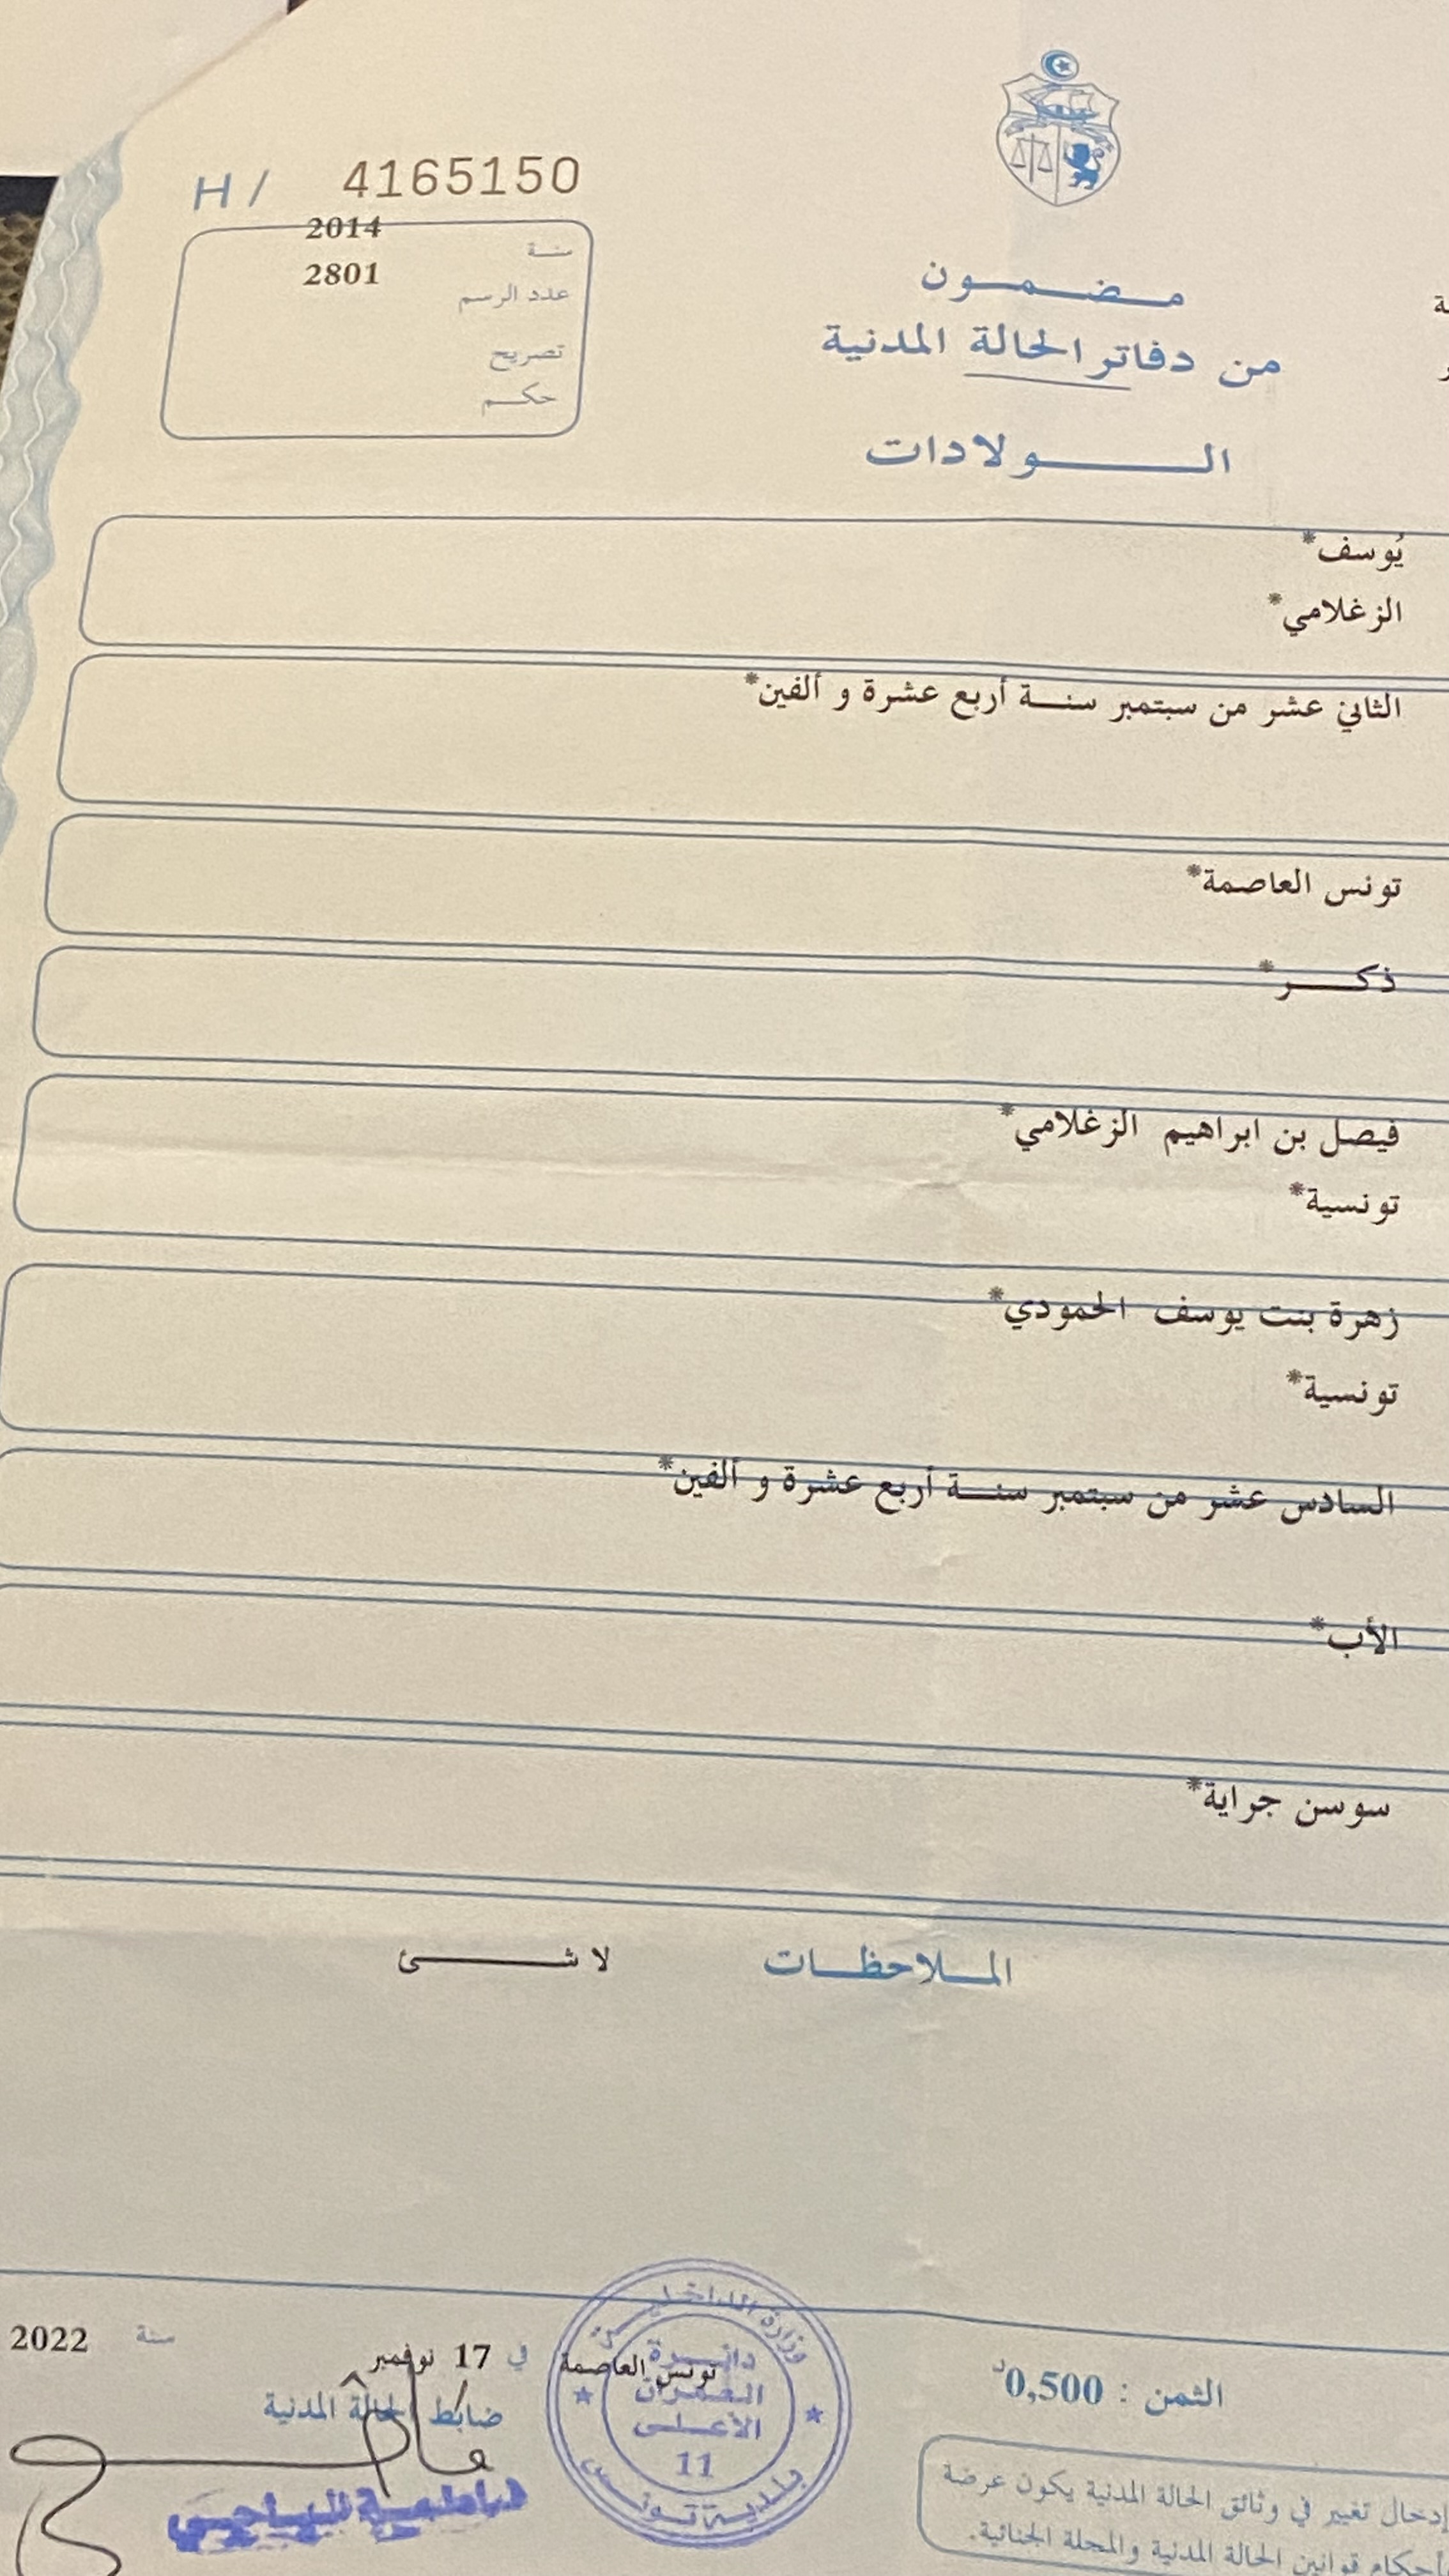 H / 4165150
سنة 2014
عدد الرسم 2801
تصريح
حكم
مضمون
من دفاتر الحالة المدنية
الولادات
يُوسف*
الزغلامي*
الثاني عشر من سبتمبر سنة أربع عشرة و ألفين*
تونس العاصمة*
ذكر*
فيصل بن ابراهيم الزغلامي*
تونسية*
زهرة بنت يوسف الحمودي*
تونسية*
السادس عشر من سبتمبر سنة أربع عشرة و ألفين*
الأب*
سوسن جراية*
الملاحظات لا شئ
تونس العاصمة في 17 نوفمبر سنة 2022
ضابط الحالة المدنية
وزارة الداخلية
دائرة
العمران
الأعلى
11
بلدية تونس
الثمن : 0,500د
إدخال تغيير في وثائق الحالة المدنية يكون عرضة
أحكام قوانين الحالة المدنية والمجلة الجنائية.